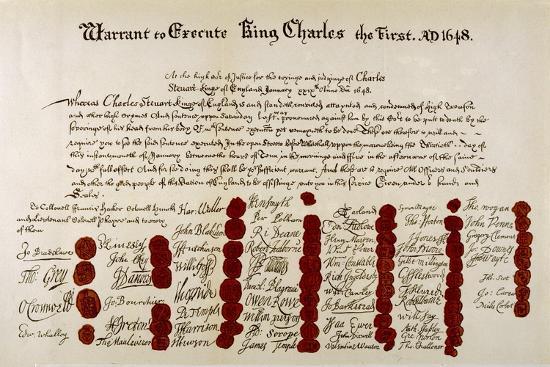 Warrant to Execute King Charles the First. AD 1648.
At the high Cot of Justice for the tryinge and judginge of Charles
Steuart kinge of England January xxixth Anno Dm 1648.
Whereas Charles Steuart kinge of England is and standeth convicted attaynted and condemned of High Treason
and other high Crymes And sentence uppon Saturday last was pronounced against him by this Cort to be putt to death by the
severinge of his head from his body Of wch sentence execucon yet remayneth to be done These are therefore to will and
require you to see the said sentence executed In the open Streete before Whitehall uppon the morrowe being the Thirtieth day of
this instante moneth of January betweene the houres of Tenn in the morninge and ffive in the afternoone of the same
day wth full effect And for soe doing this shall be your sufficient warrant And these are to require All Officers and Souldiers
and other the good people of this Nation of England to be assistinge unto you in this Service Given under o hands and
Seales
To Collonell Francis Hacker Colonell Huncks
and Lieutenant Colonell Phayre and to every
of them
Jo Bradshawe
Tho Grey
O Cromwell
Edw Whalley
John Okey
J Danvers
Jo Bourchier
H Ireton
Tho Mauleverer
Har Waller
John Blakiston
J Hutchinson
Willi Goff
T Harrison
J Hewson
Hen Smyth
Per Pelham
Ri Deane
Robert Tichborne
Owen Rowe
Ad Scrope
James Temple
Edm Ludlowe
Henry Marten
Wm Constable
Rich Ingoldsby
Will Cawley
Jo Barkestead
Isaa Ewer
John Dixwell
Valentine Wauton
Symon Mayne
Tho Horton
J Jones
John Moore
Gilbt Millington
G Fleetwood
J Alured
Robt Lilburne
Will Say
Anth Stapley
Gre Norton
Tho Challoner
Tho Wogan
John Venn
Gregory Clement
Jo Downes
Tho Wayte
Tho Scot
Jo Carew
Miles Corbet